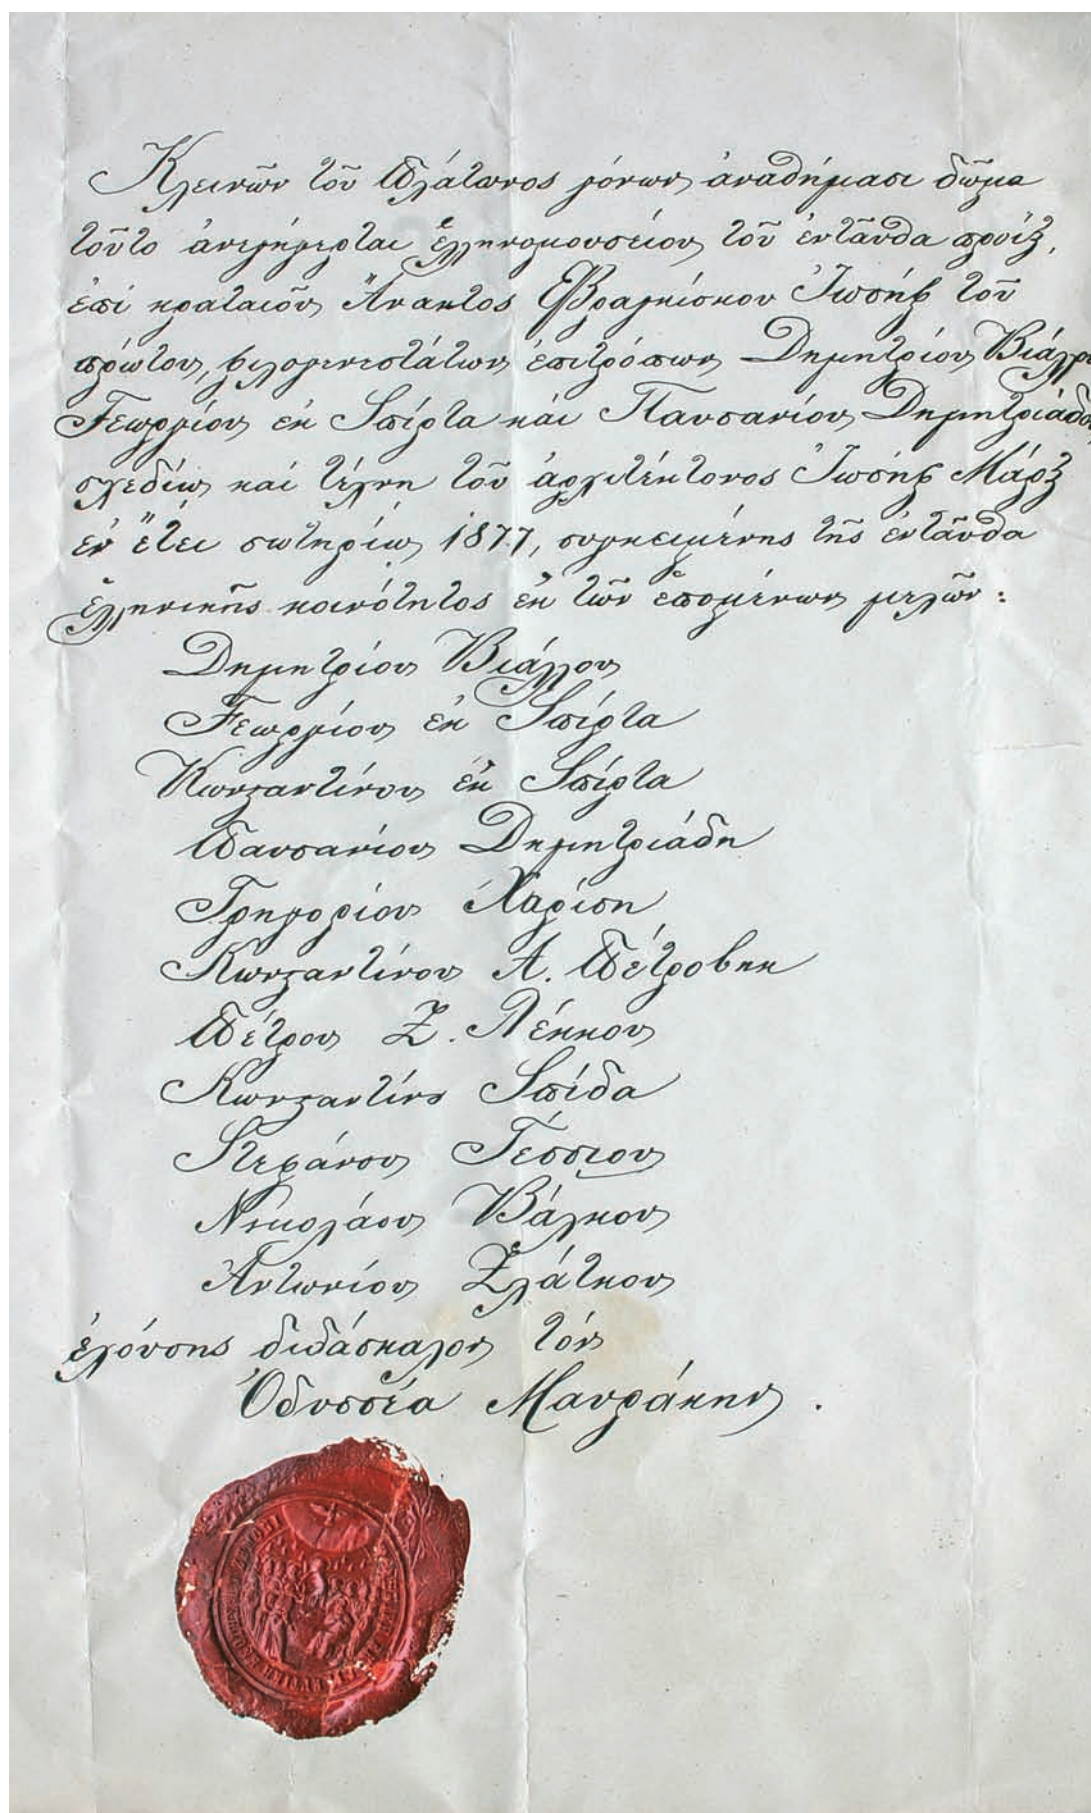 Κλεινῶν τοῦ Πλάτωνος γόνων ἀναθήμασι δῶμα
τοῦτο ἀνεγήγερται ἑλληνομουσείου τοῦ ἐνταῦθα προὶξ,
ἐπί κραταιοῦ Ἄνακτος Φραγκίσκου Ἰωσήφ τοῦ
πρώτου, φιλογενεστάτων ἐπιτρόπων Δημητρίου Βιάλλου
Γεωργίου ἐκ Σπίρτα καὶ Παυσανίου Δημητριάδου
σχεδίῳ καί τέχνῃ τοῦ ἀρχιτέκτονος Ἰωσήφ Μάρξ
ἐν ἔτει σωτηρίῳ 1877, συγκειμένης τῆς ἐνταῦθα
ἑλληνικῆς κοινότητος ἐκ τῶν ἑπομένων μελῶν:
Δημητρίου Βιάλλου
Γεωργίου ἐκ Σπίρτα
Κωνϛαντίνου ἐκ Σπίρτα
Παυσανίου Δημητριάδη
Γρηγορίου Χαρίση
Κωνϛαντίνου Α. Πέτροβηκ
Πέτρου Ζ. Λέκκου
Κωνϛαντίνȣ Σπίδα
Στεφάνου Γέσσιου
Νικολάου Βάλκου
Ἀντωνίου Ζλάτκου
ἐχούσης διδάσκαλον τόν
Ὀδυσσέα Μαυράκην.